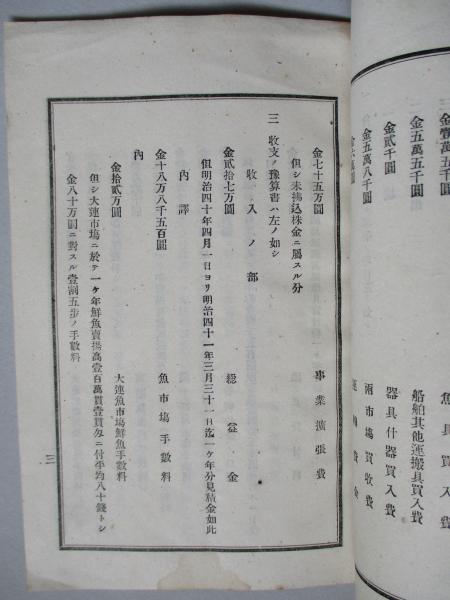 金壹萬五千圓 魚具買入費
金五萬五千圓 船舶其他運搬具買入費
金貳千圓 器具什器買入費
金五萬八千圓 兩市塲買收費
金七十五万圓 事業擴張費
但シ未拂込株金ニ屬スル分
三 收支ノ豫算書ハ左ノ如シ
收入ノ部
金貳拾七万圓 總益金
但明治四十年四月一日ヨリ明治四十一年三月三十一日迄一ケ年分見積金如此
內譯
金十八万八千五百圓 魚市塲手數料
內
金拾貳万圓 大連魚市塲鮮魚手數料
但シ大連市塲ニ於テ一ケ年鮮魚賣揚高壹百萬貫壹貫匁ニ付平均八十錢トシ
金八十万圓ニ對スル壹割五步ノ手數料
三